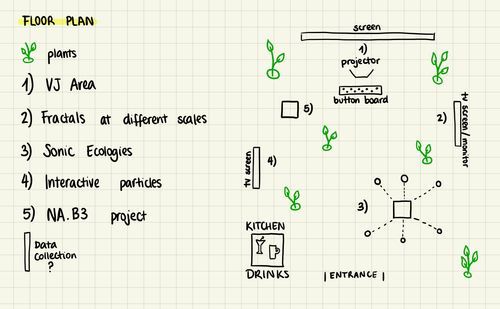 FLOOR PLAN
plants
1) VJ Area
2) Fractals at different scales
3) Sonic Ecologies
4) Interactive particles
5) NA.B3 project
Data
Collection
?
screen
1)
projector
button board
5)
2)
tv screen/monitor
tv screen
4)
3)
KITCHEN
DRINKS
| ENTRANCE |